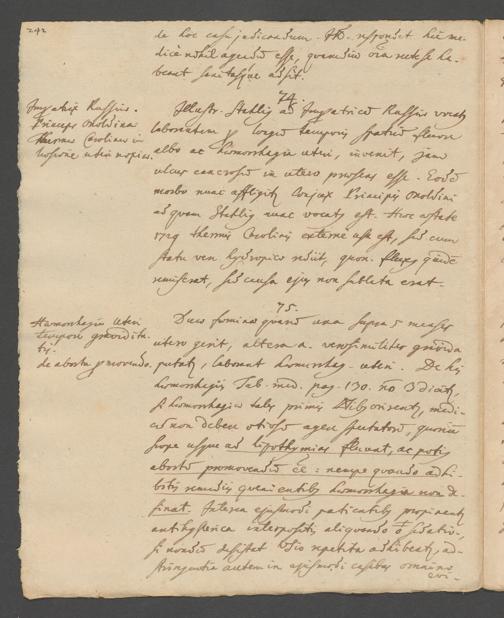 242
de hoc casu judicandum. Hb. respondet hic me-
dice nihil agendum esse, quamdiu oia recte se ha-
beant sanitasque adsit.
74.
Imperatrix Russiae.
Princeps Onoldina
thermae Carolinae in
laesione uteri noxiae.
Illustr. Stahlig ad Imperatricem Russiae vocatg
laborantem p longum temporis spatium fluore
albo ac homorrhagia uteri, invenit, jam
ulcus cancrosum in utero praesens esse. Eodem
morbo nunc affligitur Conjux Principis Onoldini
ad quam Stahlig nunc vocatg est. Hac aestate
1729 thermis Carolinis externe usa est, sed cum
statu vere hydropico rediit, quon. fluxg quidem
remiserat, sed causa ejus non sublata erat.
75.
Haemorrhagia uteri
tempore gravidita-
tis.
de abortu promovendo.
Duae feminae quarum una supra 5 menses
utero gerit, altera a. verosimiliter gravida
putatur, laborant homorrhag. uteri. De his
homorrhagiis Tab. med. pag. 130. no 3 dicitur,
si homorrhagiae tales primis mensibg oriuntur, medi-
cum non debere otiosum agere spectatorem, quoniam
saepe usque ad lipothymias fluunt, ac potig
abortum promovendum ee: nempe quando adhi-
bitis remediis quiescentibg homorrhagia non de-
sinat. Interea ejusmodi patientibg propinentur
antihysterica interpositis aliquando sedativis,
si nondum desistat VSio repetita adhibeatur, ad-
stringentia autem in ejusmodi casibus omnino
evi-